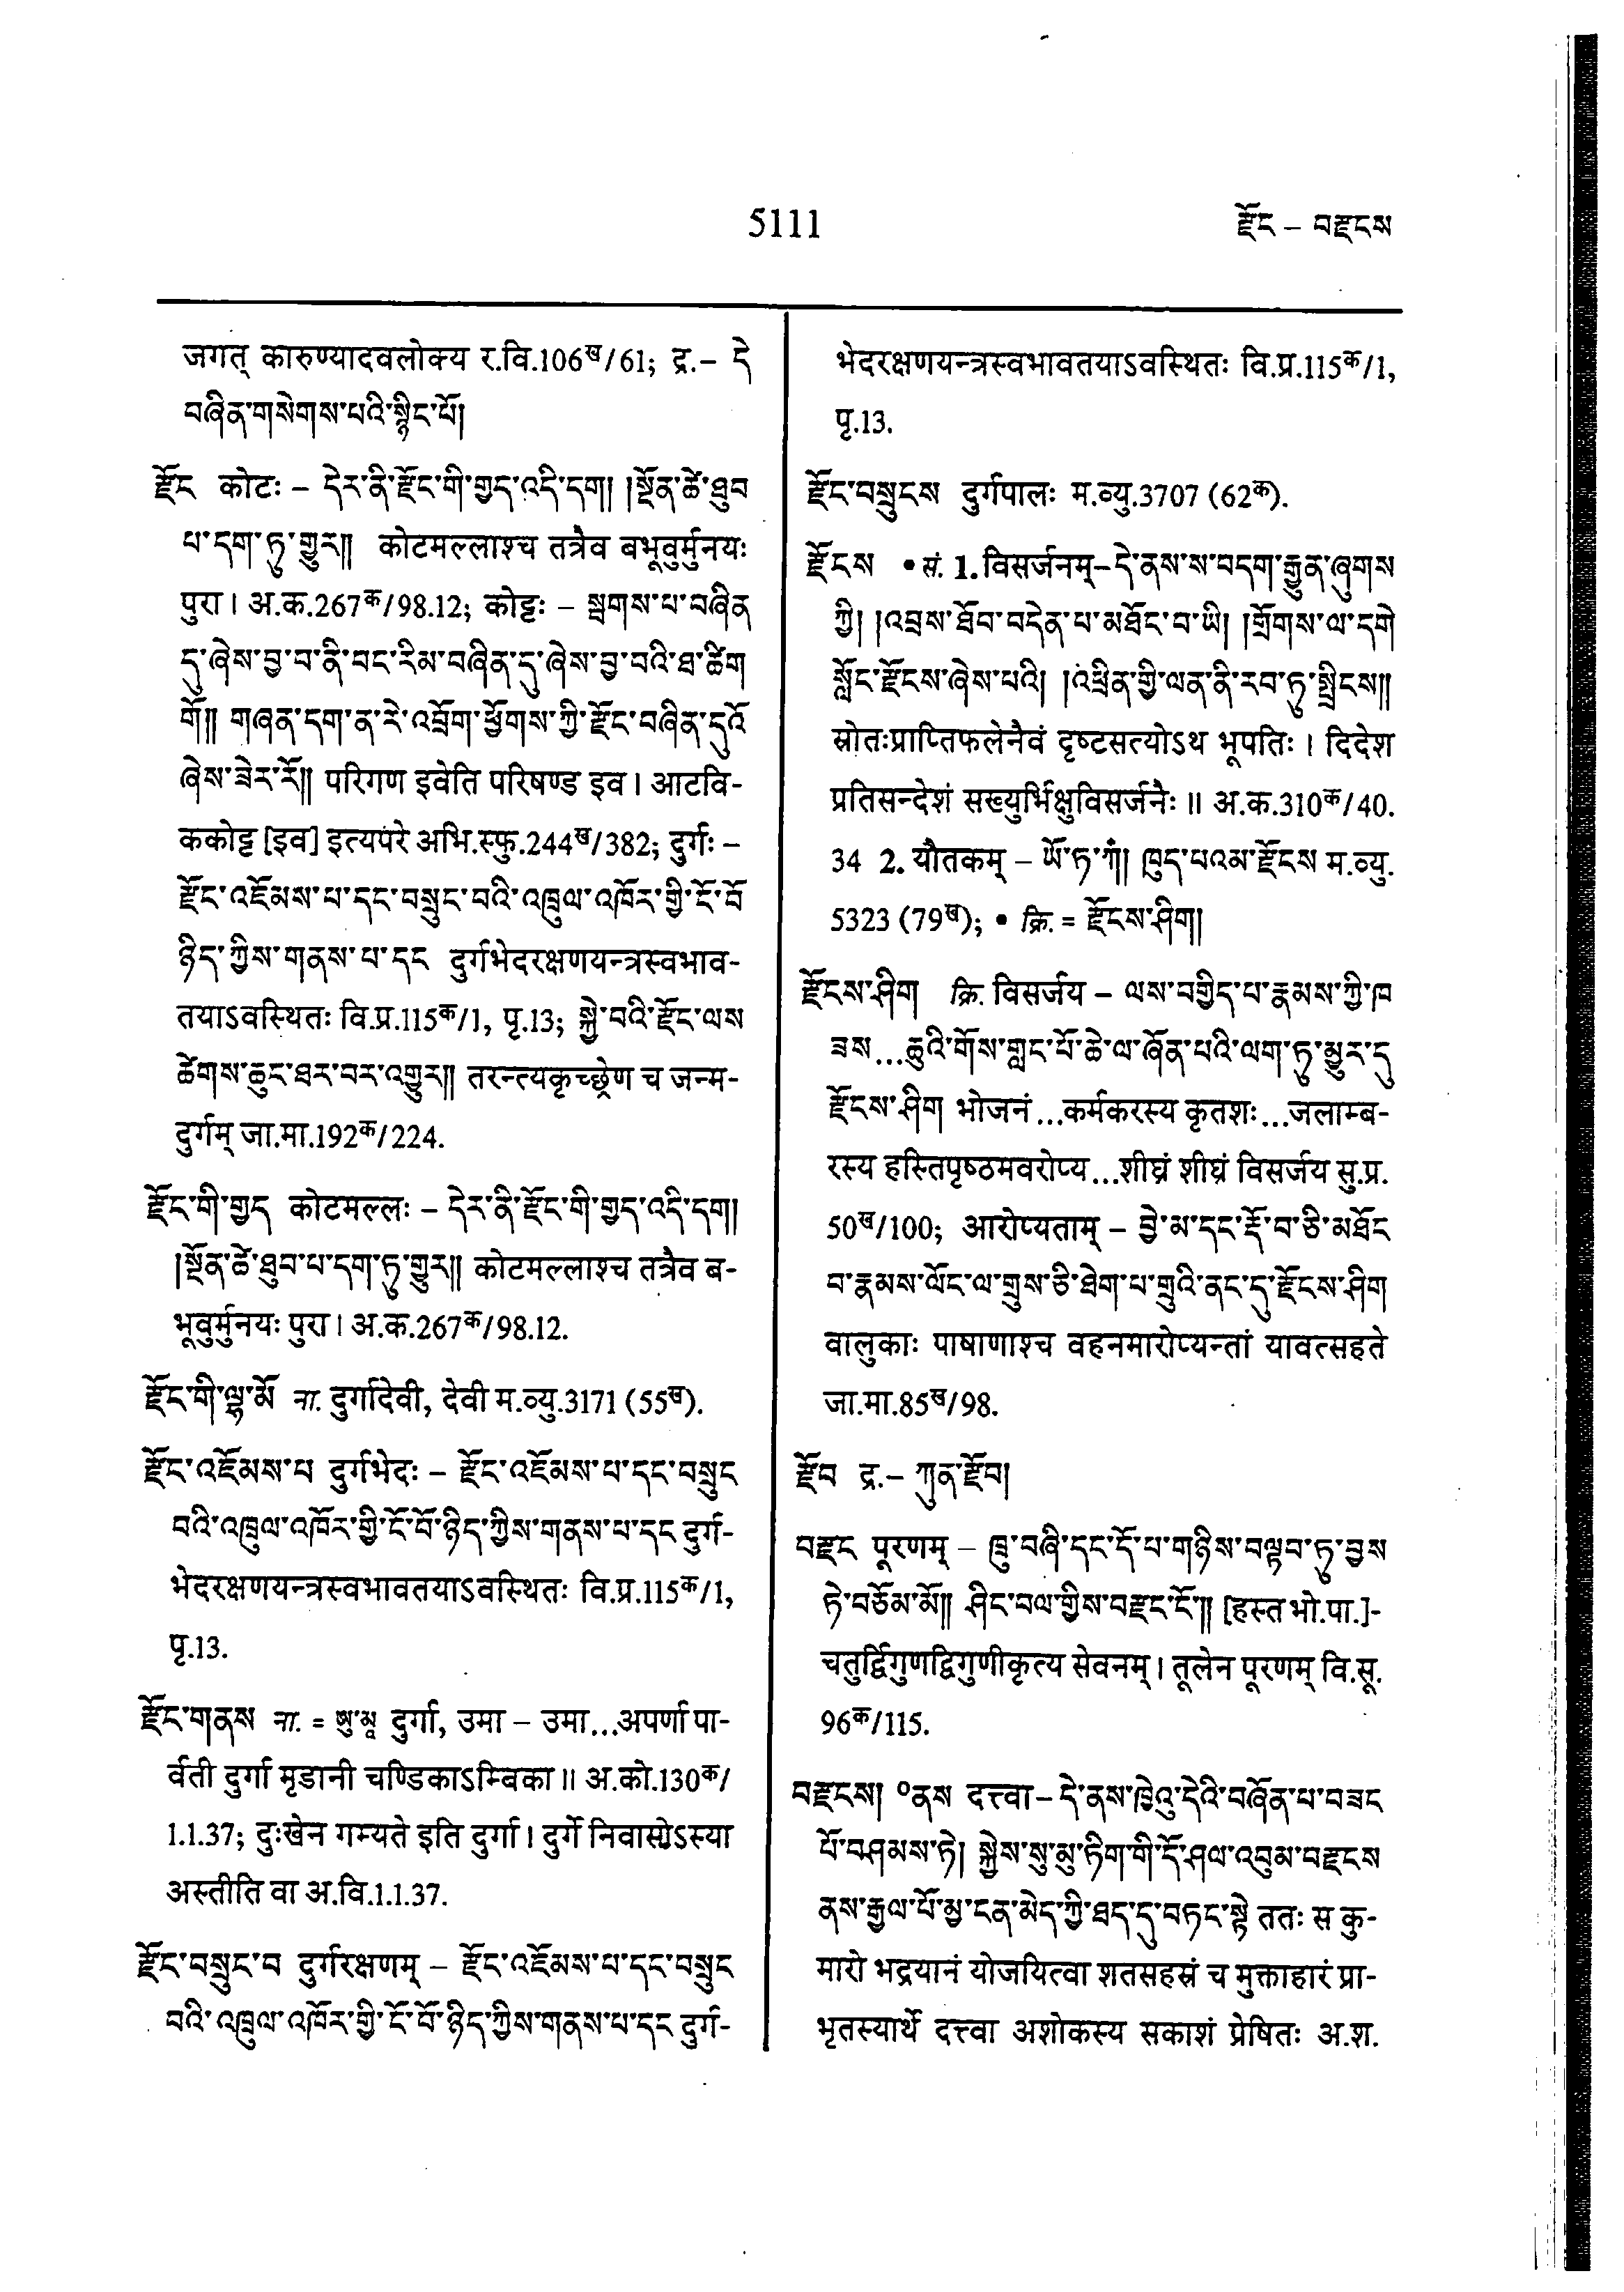 5111
རྫོང – བརྫངས
जगत् कारुण्यादवलोक्य र.वि.106ख/61; द्र.– དེ
བཞིན་གསེགས་པའི་སྙིང་པོ།
རྫོང कोटः – དེར་ནི་རྫོང་གི་གྱད་འདི་དག། །སྔོན་ཚེ་ཐུབ
པ་དག་ཏུ་གྱུར།། कोटमल्लाश्च तत्रैव बभूवुर्मुनयः
पुरा। अ.क.267क/98.12; कोट्टः – སྦགས་པ་བཞིན
དུ་ཞེས་བྱ་བ་ནི་བང་རིམ་བཞིན་དུ་ཞེས་བྱ་བའི་ཐ་ཚིག
གོ།། གཞན་དག་ན་རེ་འབྲོག་ཕྱོགས་ཀྱི་རྫོང་བཞིན་དུའོ
ཞེས་ཟེར་རོ།། परिगण इवेति परिषण्ड इव। आटवि-
ककोट्ट [इव] इत्यपरे अभि.स्फु.244ख/382; दुर्गः –
རྫོང་འཇོམས་པ་དང་བསྲུང་བའི་འཁྲུལ་འཁོར་གྱི་ངོ་བོ
ཉིད་ཀྱིས་གནས་པ་དང दुर्गभेदरक्षणयन्त्रस्वभाव-
तयाऽवस्थितः वि.प्र.115क/1, पृ.13; སྐྱེ་བའི་རྫོང་ལས
ཚེགས་ཆུང་ཐར་བར་འགྱུར།། तरन्त्यकृच्छ्रेण च जन्म-
दुर्गम् जा.मा.192क/224.
རྫོང་གི་གྱད कोटमल्लः – དེར་ནི་རྫོང་གི་གྱད་འདི་དག།
།སྔོན་ཚེ་ཐུབ་པ་དག་ཏུ་གྱུར།། कोटमल्लाश्च तत्रैव ब-
भूवुर्मुनयः पुरा। अ.क.267क/98.12.
རྫོང་གི་ལྷ་མོ ना. दुर्गादेवी, देवी म.व्यु.3171 (55ख).
རྫོང་འཇོམས་པ दुर्गभेदः – རྫོང་འཇོམས་པ་དང་བསྲུང
བའི་འཁྲུལ་འཁོར་གྱི་ངོ་བོ་ཉིད་ཀྱིས་གནས་པ་དང दुर्ग-
भेदरक्षणयन्त्रस्वभावतयाऽवस्थितः वि.प्र.115क/1,
पृ.13.
རྫོང་གནས ना. = ཨུ་མཱ दुर्गा, उमा – उमा...अपर्णा पा-
र्वती दुर्गा मृडानी चण्डिकाऽम्बिका॥ अ.को.130क/
1.1.37; दुःखेन गम्यते इति दुर्गा। दुर्गे निवासोऽस्या
अस्तीति वा अ.वि.1.1.37.
རྫོང་བསྲུང་བ दुर्गरक्षणम् – རྫོང་འཇོམས་པ་དང་བསྲུང
བའི་འཁྲུལ་འཁོར་གྱི་ངོ་བོ་ཉིད་ཀྱིས་གནས་པ་དང दुर्ग-
भेदरक्षणयन्त्रस्वभावतयाऽवस्थितः वि.प्र.115क/1,
पृ.13.
རྫོང་བསྲུངས दुर्गपालः म.व्यु.3707 (62क).
རྫོངས • सं. 1. विसर्जनम्– དེ་ནས་ས་བདག་རྒྱུན་ཞུགས
ཀྱི། །འབྲས་ཐོབ་བདེན་པ་མཐོང་བ་ཡི། །གྲོགས་ལ་དགེ
སློང་རྫོངས་ཞེས་པའི། །འཕྲིན་གྱི་ལན་ནི་རབ་ཏུ་སྤྲིངས།།
स्रोतःप्राप्तिफलेनैवं दृष्टसत्योऽथ भूपतिः। दिदेश
प्रतिसन्देशं सख्युर्भिक्षुविसर्जनैः॥ अ.क.310क/40.
34 2. यौतकम् – ཡོ་ཏ་ཀཾ།། ཁུད་པའམ་རྫོངས म.व्यु.
5323 (79ख); • क्रि. = རྫོངས་ཤིག།
རྫོངས་ཤིག क्रि. विसर्जय – ལས་བགྱིད་པ་རྣམས་ཀྱི་ཁ
ཟས...ཆུའི་གོས་གླང་པོ་ཆེ་ལ་ཞོན་པའི་ལག་ཏུ་མྱུར་དུ
རྫོངས་ཤིག भोजनं...कर्मकरस्य कृतशः...जलाम्ब-
रस्य हस्तिपृष्ठमवरोप्य...शीघ्रं शीघ्रं विसर्जय सु.प्र.
50ख/100; आरोप्यताम् – བྱེ་མ་དང་རྡོ་བ་ཅི་མཐོང
བ་རྣམས་ལོང་ལ་གྲུས་ཅི་ཐེག་པ་གྲུའི་ནང་དུ་རྫོངས་ཤིག
वालुकाः पाषाणाश्च वहनमारोप्यन्तां यावत्सहते
जा.मा.85ख/98.
རྫོབ द्र.– ཀུན་རྫོབ།
བརྫང पूरणम् – ཁྲུ་བཞི་དང་དོ་པ་གཉིས་བལྟབ་ཏུ་བྱས
ཏེ་བཙེམ་མོ།། ཤིང་བལ་གྱིས་བརྫང་ངོ་།། [हस्त भो.पा.]-
चतुर्द्विगुणद्विगुणीकृत्य सेवनम्। तूलेन पूरणम् वि.सू.
96क/115.
བརྫངས། °ནས दत्त्वा– དེ་ནས་ཁྱེའུ་དེའི་བཞོན་པ་བཟང
པོ་བཤམས་ཏེ། སྐྱེས་སུ་མུ་ཏིག་གི་དོ་ཤལ་འབུམ་བརྫངས
ནས་རྒྱལ་པོ་མྱ་ངན་མེད་ཀྱི་ཐད་དུ་བཏང་སྟེ ततः स कु-
मारो भद्रयानं योजयित्वा शतसहस्रं च मुक्ताहारं प्रा-
भृतस्यार्थे दत्त्वा अशोकस्य सकाशं प्रेषितः अ.श.